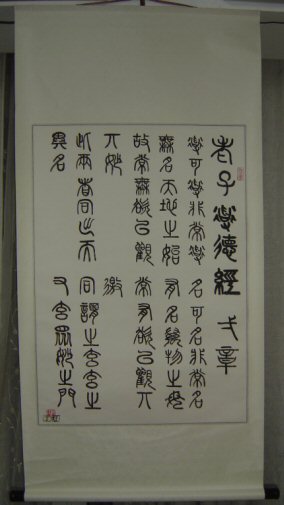 老子道德經 弌章
道可道非常道 名可名非常名
無名天地之始 有名萬物之母
故常無欲以觀 常有欲以觀亓
亓妙 徼
此兩者同出而 同謂之玄玄之
異名 又玄眾妙之門